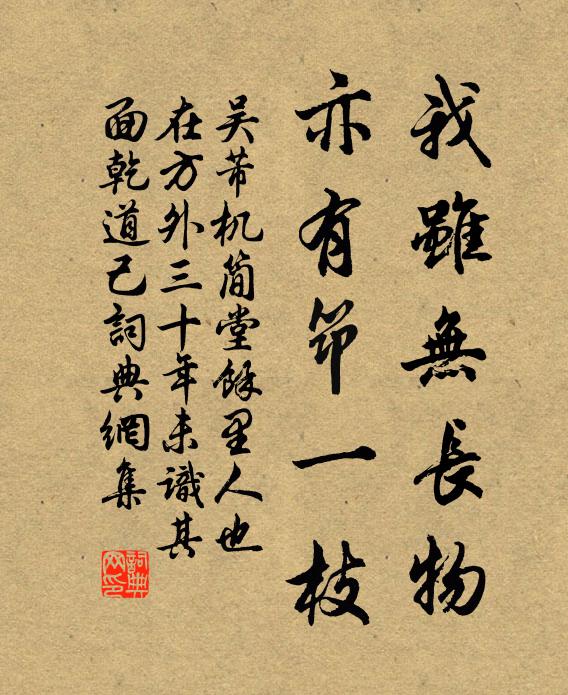 我雖無長物
亦有笻一枝
吴芾机簡堂餘里人也
在方外三十年未識其
面乾道己詞典網集
詞典
网印